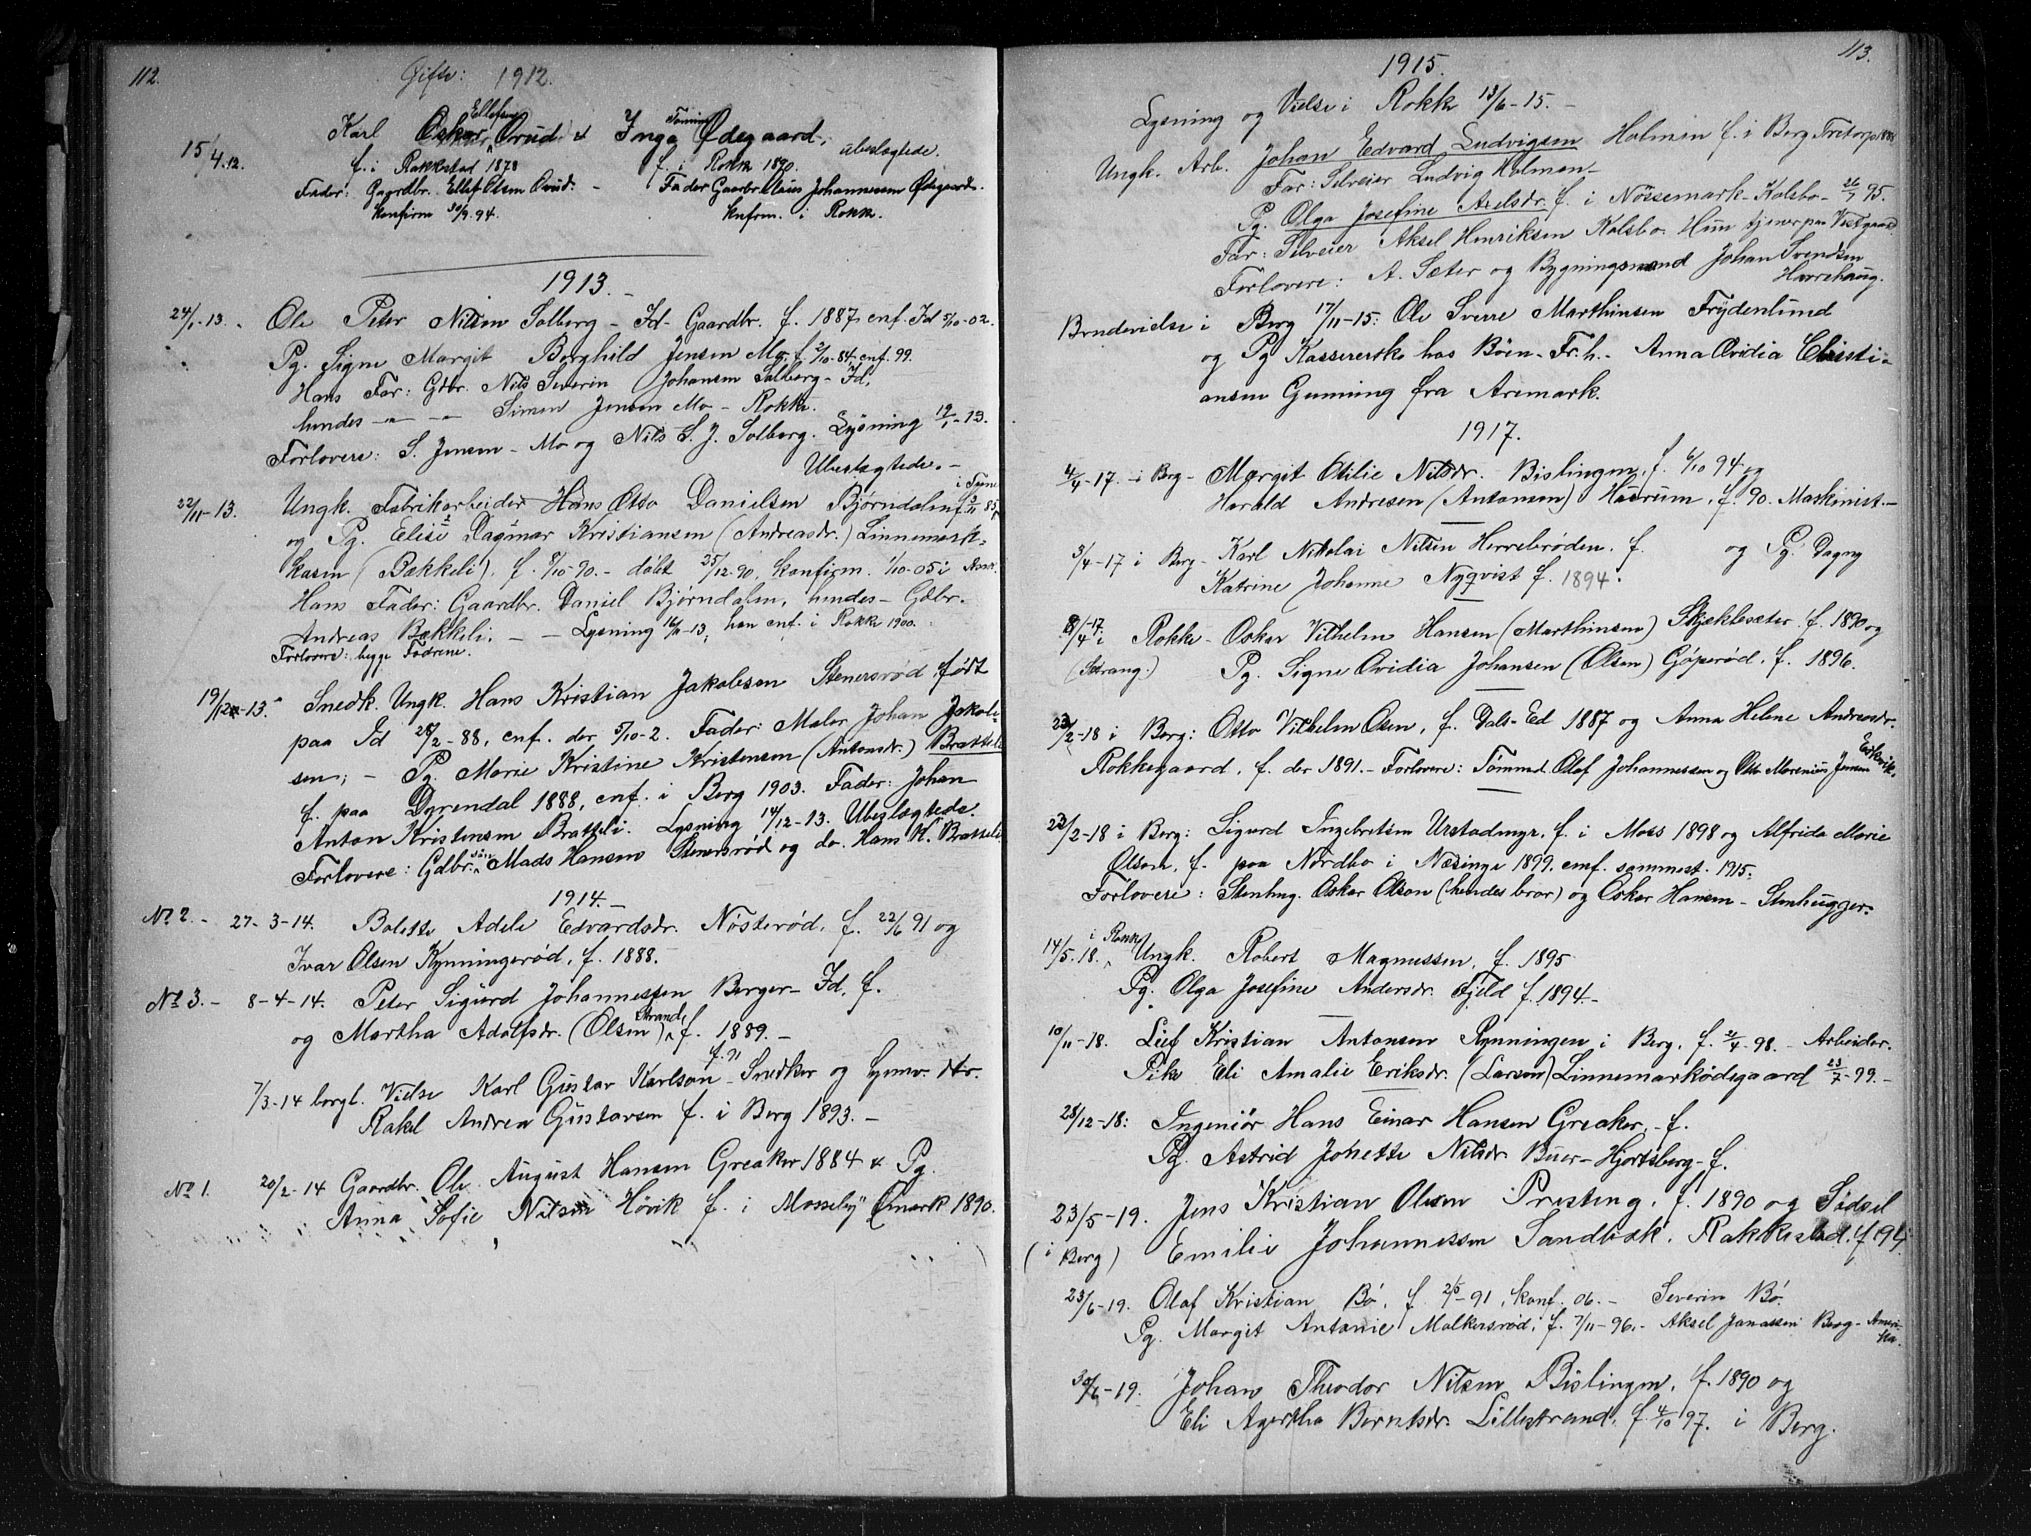 112.
Gifte: 1912.
15/4.12. Karl Oskar Ellefsen Ørud & Inga Ødegaard, ubeslægtede.
f. i Rakkestad 1878 f. i Rokk 1890.
Fader: Gaardbr. Ellef Olsen Ørud. – Fader Gaarbr. Claus Johannessen Ødegaard.
Konfirm 30/9.94. Knfrm. i Rokk.
1913.
24/1-13. Ole Peter Nilsen Solberg – Id – Gaardbr. f. 1887, cnf. Id 5/10-02.
Pg. Signe Margit Borghild Jensen Mo, f. 2/10-84, cnf. 99.
Hans Far: Gdbr. Nils Severin Johansen Solberg – Id,
hendes –"– –"– Simen Jensen Mo – Rokke.
Forlovere: S. Jensen – Mo og Nils S. J. Solberg. Lysning 12/1-13.
Ubeslægtede. –
22/11-13. Ungk. Fabrikarbeider Hans Otto Danielsen Bjørndalen
og Pg. Elise Dagmar Kristiansen (Andreasdr.) Linnemark-
kasen (Bækkeli), f. 8/10-90. – døbt 25/12-90, konfirm. 1/10-05 i Arem.
Hans Fader: Gaardbr. Daniel Bjørndalen, hendes – Gdbr.
Andreas Bækkeli. – – Lysning 16/11-13, han cnf. i Rokke 1900.
Forlovere: begge Fædrene.
19/12-13. Snedk. Ungk. Hans Kristian Jakobsen Stenersrød, født
paa Id 28/2-88, cnf. der 5/10-2. Fader: Maler Johan Jakob-
sen; – Pg. Marie Kristine Kristensen (Antonsdr.) Bratteli
f. paa Dyrendal 1888, cnf. i Berg 1903. Fader: Johan
Anton Kristensen Bratteli. Lysning 14/12-13. Ubeslægtede.
Forlovere: Gdbr. Mads Hansen Stenersrød og do. Hans K. Bratteli
1914. –
No 2. – 27-3-14. Bolette Adele Edvardsdr. Nøsterød, f. 22/6 91 og
Ivar Olsen Kynningsrød, f. 1888. –
No 3. – 8-4-14. Peter Sigurd Johannessen Berger – Id, f.
og Martha Adolfsdr. (Olsen) Strand, f. 1889. –
7/3-14 borgl. Vielse Karl Gustav Karlson f. 91 – Snedker og
Rakel Andrea Gustavsen f. i Berg 1893. –
No 1. 20/2-14 Gaardbr. Ole August Hansen Greaker 1884 & Pg.
Anna Sofie Nilsen Høvik f. i Mosseby Ømark 1890.
113.
1915.
Lysning og Vielse i Rokke 13/6-15. –
Ungk. Arb. Johan Edvard Ludvigsen Holmen f. i Berg Tretorp 1888
Far: Selveier Ludvig Holmen –
Pg. Olga Josefine Axelsdr. f. i Nössemark – Kolsbo – 26/7 95.
Far: Selveier Aksel Henriksen Kolsbo. Hun tjener paa Vestgaard
Forlovere: A. Sæter og Bygningsmand Johan Svendsen
Hærrehaug.
Brudevielse i Berg 17/11-15: Ole Sverre Marthinsen Frydenlund
og Pg Kassererske hos Böen – Fr.h. – Anna Ovidia Christi-
ansen Gunning fra Aremark.
1917.
4/4-17. – i Berg – Margit Otilie Nilsdr. Bislingen, f. 6/10 94 og
Harald Andresen (Antonsen) Husrum, f. 90. Maskinist. –
3/4-17 i Berg – Karl Nikolai Nilsen Herrebröden. f. og Pg. Dagny
Katrine Johanne Nyqvist f. 1894.
8/4-17 i Rokke – Oskar Vilhelm Hansen (Marthinsen) Skjeklesæter. f. 1890 og
Pg. Signe Ovidia Johansen (Olsen) Gåperød, f. 1896.
23/2-18 i Berg: Otto Vilhelm Olsen, f. Dals-Ed 1887 og Anna Helene Andreasdr.
Rokkegaard, f. der 1891. – Forlovere: Tömmd. Olaf Johannessen og Otto Marenius Jensen
23/2-18 i Berg: Sigurd Ingebretsen Urstadmyr, f. i Moss 1898 og Alfrida Marie
Olson, f. paa Nordbo i Næsinge 1899, cnf. sammest. 1915.
Forlovere: Stenhug. Oskar Olson (hendes bror) og Oskar Hansen – Stenhugger.
14/5.18. i Rokke Ungk. Robert Magnussen, f. 1895
Pg. Olga Josefine Andersdr. Fjeld f. 1894. –
10/11-18. Leif Kristian Antonsen Rynningen i Berg, f. 2/4-98. – Arbeider.
Pike Eli Amalie Eriksdr. (Larsen) Linnemarködegaard 23/7-99. –
28/12-18: Ingeniör Hans Einar Hansen Greaker, – f.
Pg. Astrid Johette Nilsdr. Buer – Hjortsberg – f.
23/5-19. Jens Kristian Olsen Präsling, f. 1890 og Södsel
(i Berg) Emilie Johannessen Sandbæk. Rakkestad, f. 94.
23/6-19. Olaf Kristian Bö, f. 2/5-91, konf. 06. – Severin Bö.
Pg. Margit Antonie Molkersröd, f. 7/11-96. – Aksel Janassen Berg – Ameri-
ka.
30/6-19. Johan Theodor Nilsen Bislingen, f. 1890 og
Eli Agertha Berntsdr. Lillestrand, f. 4/10 97. i Berg.